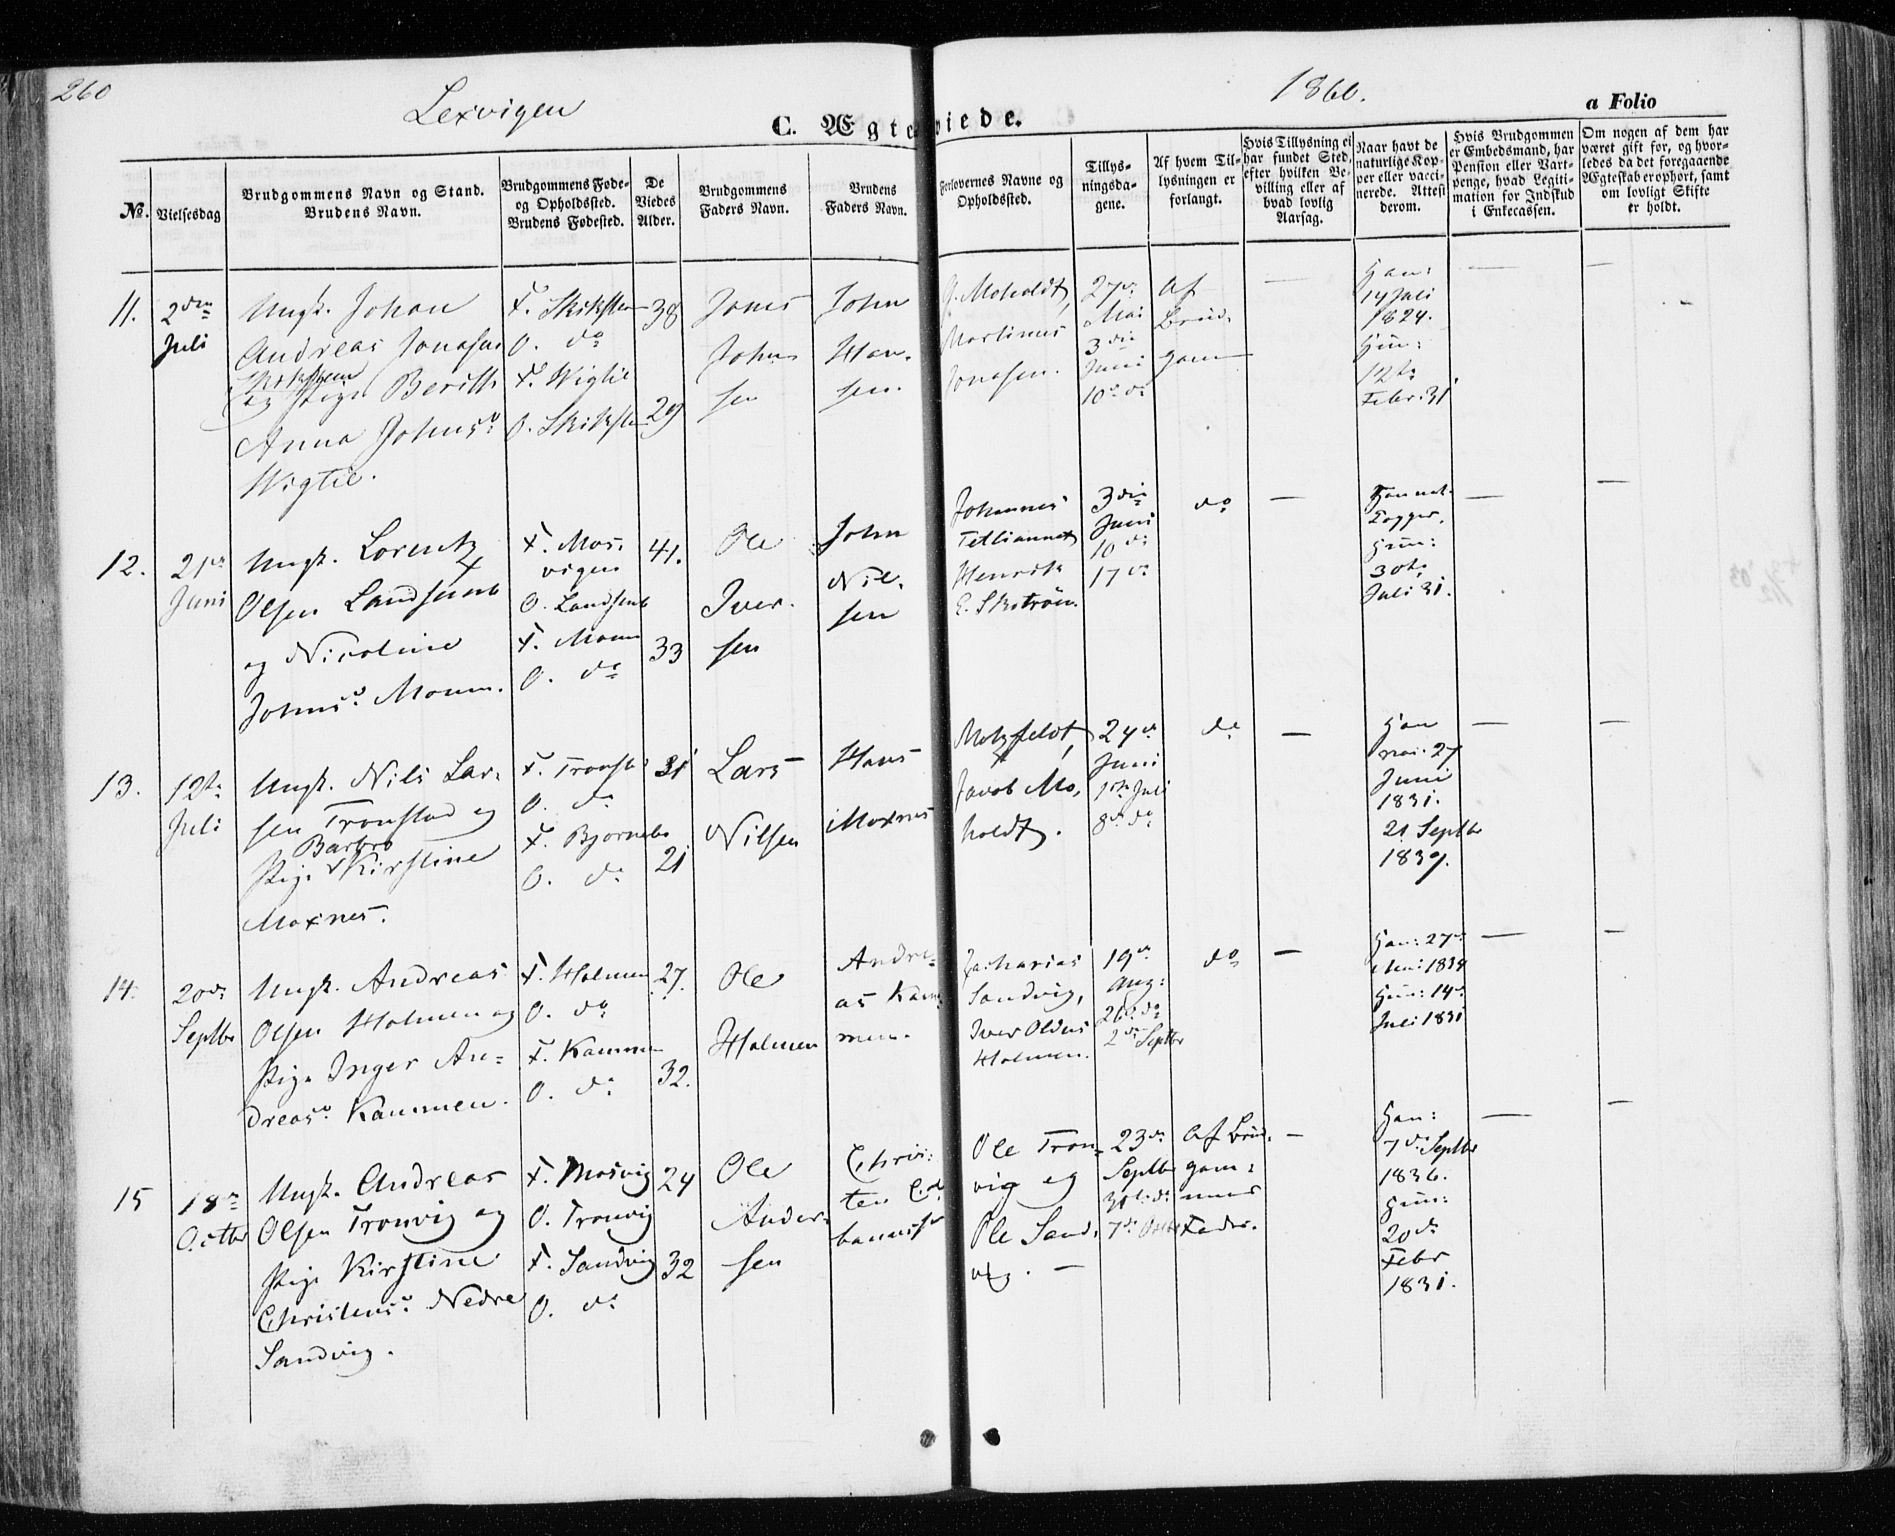 260
Lexvigen
1860.
C. Ægteviede.
a Folio
No.
Vielsesdag
Brudgommens Navn og Stand.
Brudens Navn.
Brudgommens Føde-
og Opholdssted.
Brudens Fødested.
De
Viedes
Alder.
Brudgommens
Faders Navn.
Brudens
Faders Navn.
Forlovernes Navne og
Opholdssted.
Tillys-
ningsda-
gene.
Af hvem Til-
lysningen er
forlangt.
Hvis Tillysning ei
har fundet Sted,
efter hvilken Be-
villing eller af
hvad lovlig
Aarsag.
Naar havt de
naturlige Kop-
per eller vacci-
nerede. Attest
derom.
Hvis Brudgommen
er Embedsmand, har
Pension eller Vart-
penge, hvad Legiti-
mation for Indskud
i Enkecassen.
Om nogen af dem har
været gift før, og hvor-
ledes da det foregaaende
Ægteskab er ophørt, samt
om lovligt Skifte
er holdt.
11.
2den
Juli
Ungk. Johan
Andreas Jonasen
og Pige Berith
Anna Johnsd.
Wigtil.
F.
O. do
F. Wigtil
O.
38
29
Jonas
Johan
sen
John
Han-
sen.
J. Moholdt,
Martinus
Jonasen.
27de
Mai
3die
Juni
10de do
Af
Brud-
gom
Han:
14 Juli
1824.
Hun:
12te
Febr: 31
12.
21de
Juni
Ungk. Lorentz
Olsen Landsemb
og Nicoline
Johnsd. Moum.
F. Mos-
vigen
O. Landsemb
F. Moum
O. do
41.
33
Ole
Iver-
sen
John
Nil-
sen
Johannes
Henrik
E.
3die
Juni
10de
17de
do
Han nat.
Kopper.
Hun:
30te
Juli 31.
13.
12te
Juli
Ungk. Nils Lar-
sen Tronstad og
Barbro
Pige Kirstine
Moxnes.
F. Tronst.
O. do
F. Bjørnebo
O. do
31
21
Lars
Nilsen
Hans
Moxnes
Motzfeldt,
Jacob Mo-
holdt.
24de
Juni
1ste Juli
8de do
do
Han
27
Juni
1831.
21 Septbr
1839.
14.
20de
Septbr
Ungk. Andreas
Olsen Holmen og
Pige Inger An-
dreasd. Kammen.
F. Holmen
O. do
F. Kammen
O. do
27.
32.
Ole
Holmen
Andre-
as Kam-
men.
Zacharias
Sandvig,
Iver
Holmen.
19de
Aug:
26de do
2de Septbr
do
Han: 27de
Hun: 14de
Juli 1831
15
18de
Octbr
Ungk. Andreas
Olsen Tronvig og
Pige Kirstine
Christensd. Nedre
Sandvig.
F. Mosvig
O. Tronvig
F. Sandvig
O. do
24
32
Ole
Anders-
sen
Chris-
ten
Ole Tron-
vig og
Ole Sand-
vig.
23de
Septbr
30te do
7de Octbr
Af Brud-
gom-
mens
Fader.
Han:
7de Septbr
1836.
Hun:
20de
Febr
1831.